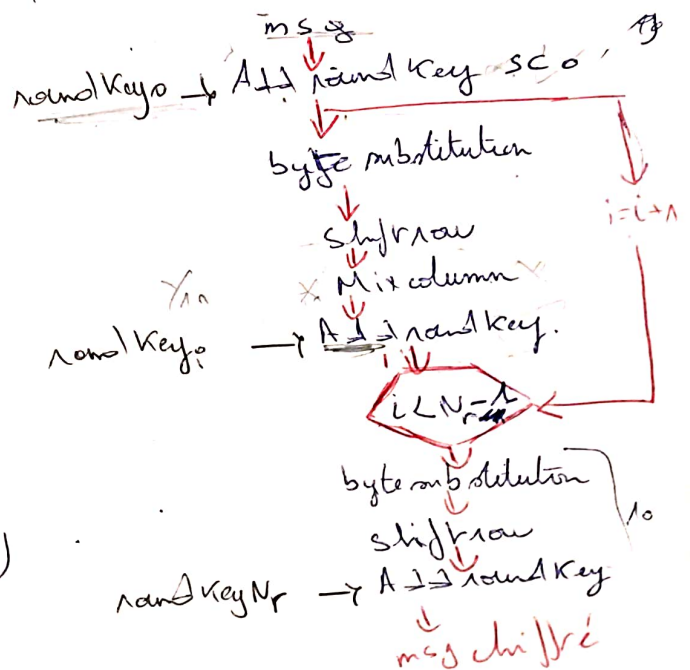 msg
roundKey0 → Add round Key SC0
byte substitution
i=i+1
shift row
Mixcolumn
roundKeyi → Add roundkey.
i<Nr-1
byte substitution
10
shift row
roundKeyNr → Add roundKey
msg chiffré